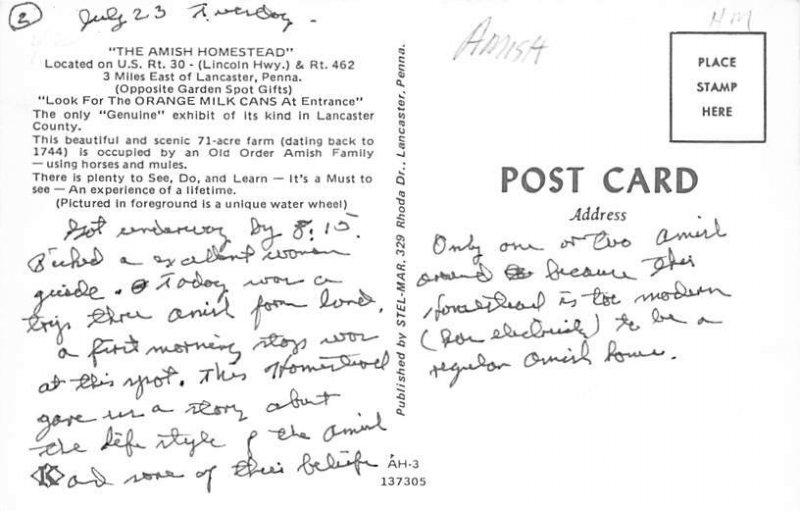 2
July 23 Tuesday.
"THE AMISH HOMESTEAD"
Located on U.S. Rt. 30 - (Lincoln Hwy.) & Rt. 462
3 Miles East of Lancaster, Penna.
(Opposite Garden Spot Gifts)
"Look For The ORANGE MILK CANS At Entrance"
The only "Genuine" exhibit of its kind in Lancaster
County.
This beautiful and scenic 71-acre farm (dating back to
1744) is occupied by an Old Order Amish Family
— using horses and mules.
There is plenty to See, Do, and Learn — It's a Must to
see — An experience of a lifetime.
(Pictured in foreground is a unique water wheel)
Got underway by 8:15.
Picked a excellent woman
guide. Today was a
trip thru Amish farm land.
a first morning stop was
at this spot. This Homestead
gave us a story about
the life style of the Amish
and some of their beliefs
K
AH-3
137305
Published by STEL-MAR, 329 Rhoda Dr., Lancaster, Penna.
AMISH
HM
PLACE
STAMP
HERE
POST CARD
Address
Only one or two Amish
around because this
Homestead is too modern
(has electricity) to be a
regular Amish home.